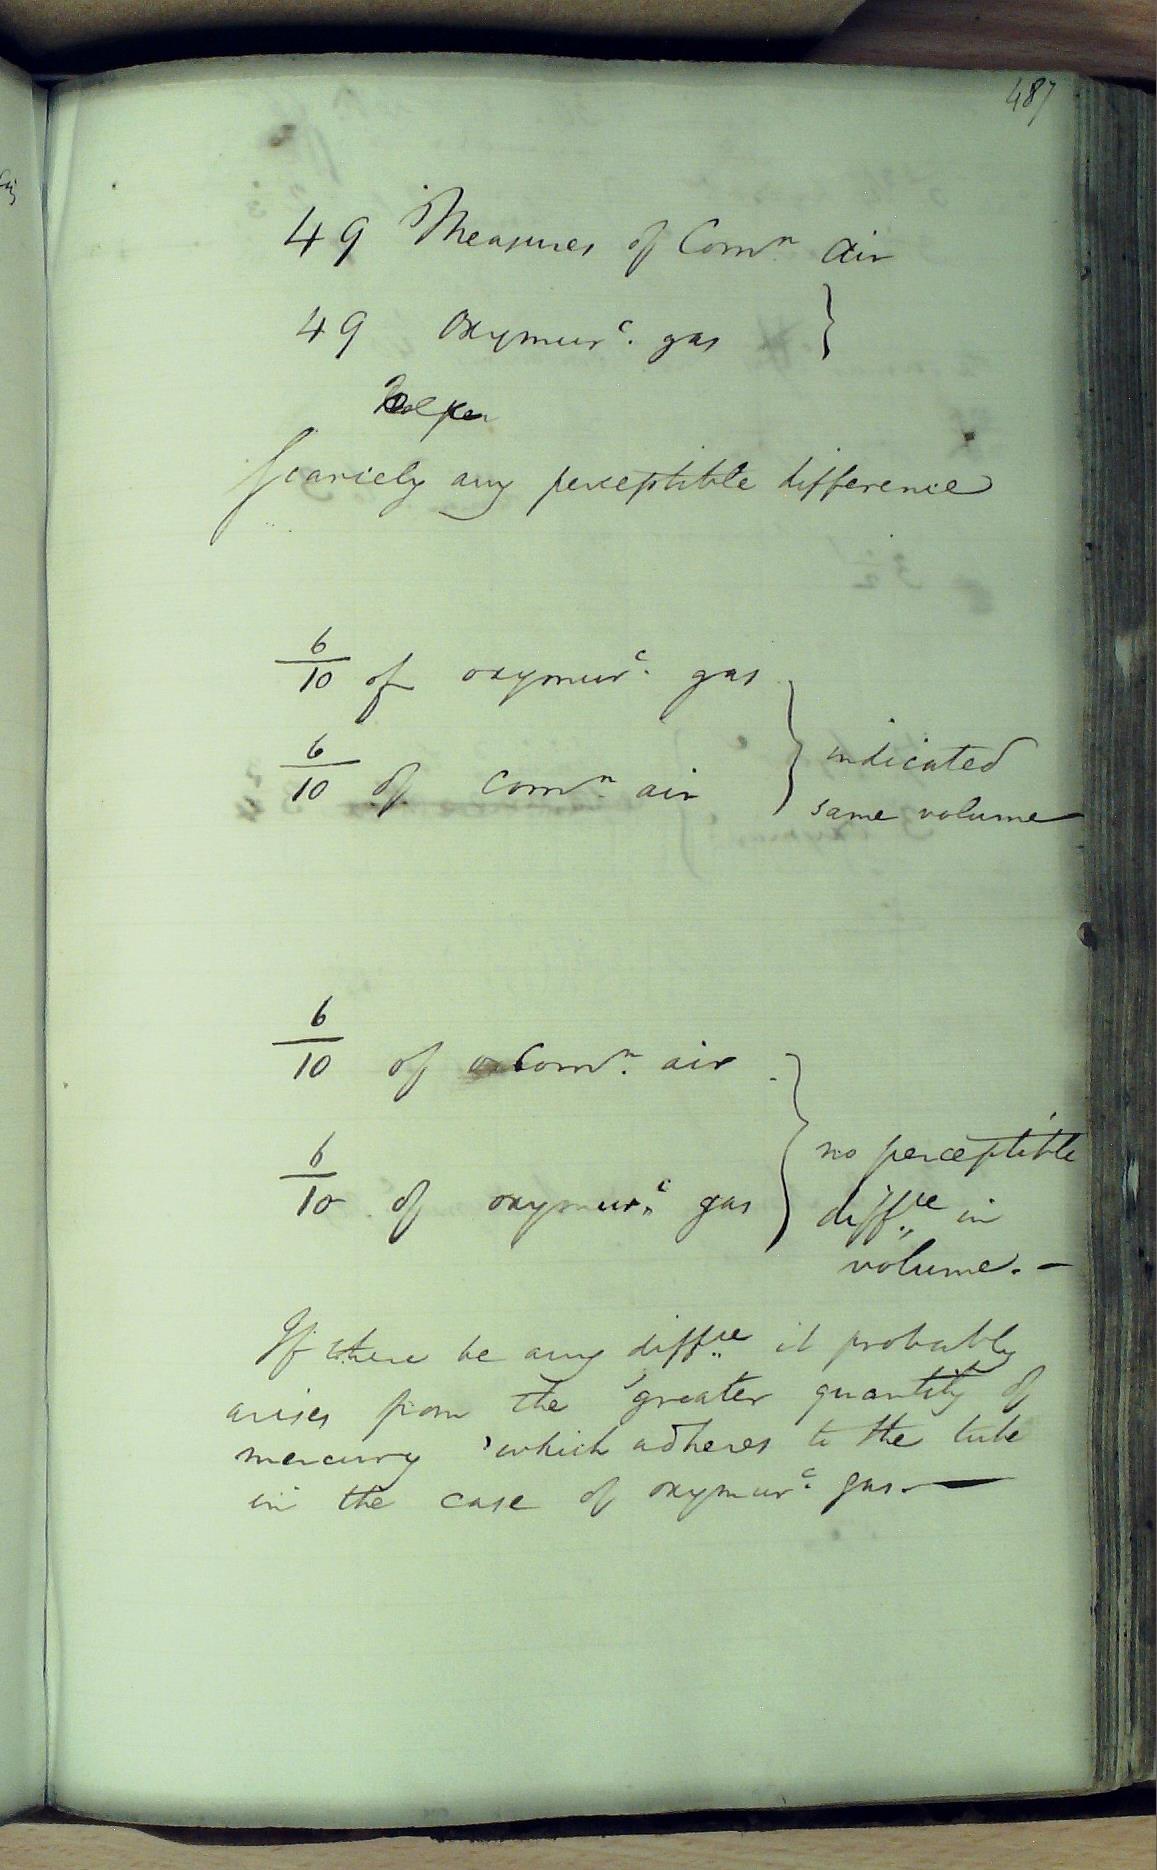 487
49 Measures of Comn. air
49 Oxymurc. gas }
Scarcely any perceptible difference
6/10 of oxymurc. gas
6/10 of comn. air } indicated
same volume
6/10 of Comn. air
6/10 of oxymurc. gas } no perceptible
diffce in
volume. —
If there be any diffce it probably
arises from the greater quantity of
mercury which adheres to the tube
in the case of oxymurc. gas. —